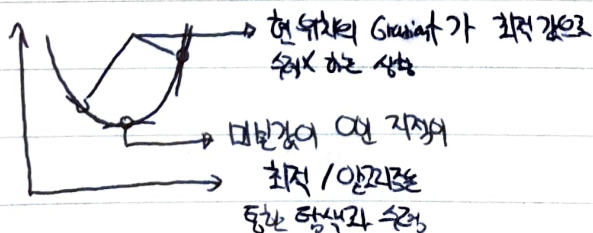 현 위치의 Gradient가 최적 값으로
수렴X 하는 상황
미분값이 0인 지점이
최적 / 알고리즘
통한 탐색과 수렴